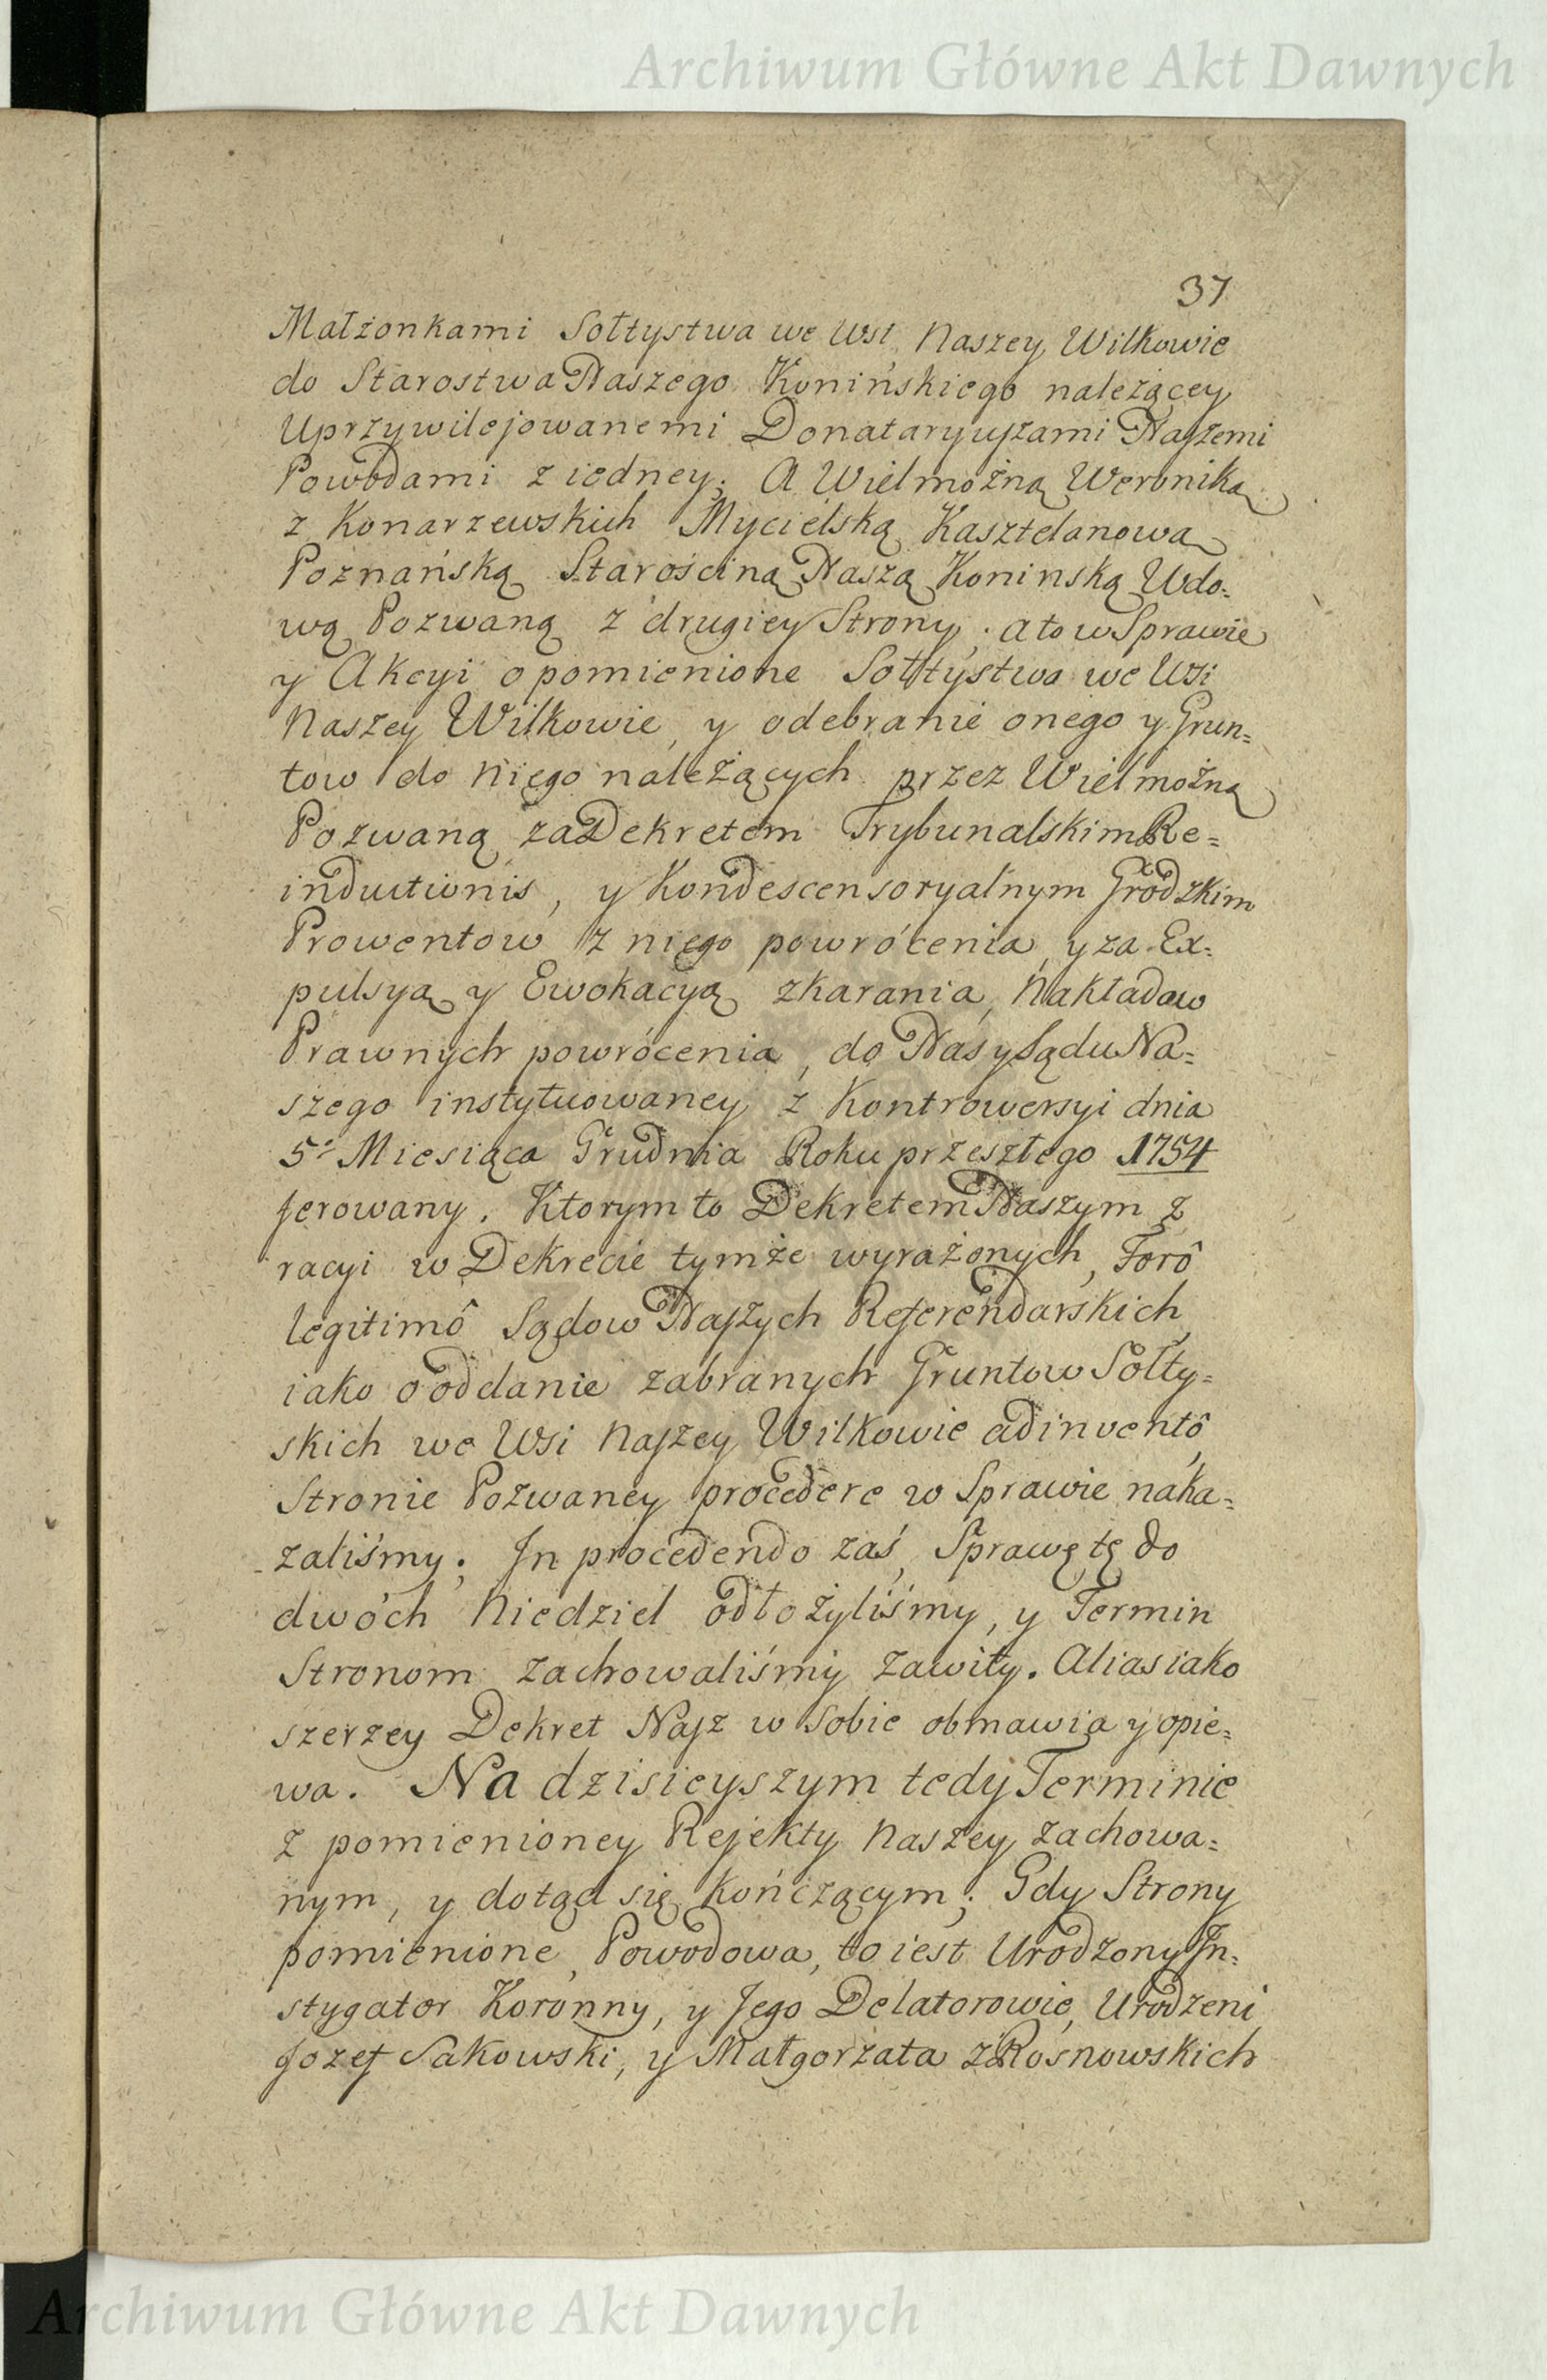 Archiwum Główne Akt Dawnych
37
Małżonkami Sołtystwa we Wsi Naszey Wilkowie
do Starostwa Naszego Konińskiego należącey
Uprzywilejowanemi Donataryuszami Naszemi
Powodami z iedney; A Wielmożną Weroniką
z Konarzewskich Mycielską Kasztelanową
Poznańską Starościną Naszą Koninską Wdo=
wą Pozwaną z drugiey Strony. a to w Sprawie
y Akcyi o pomienione Sołtystwa we Wsi
Naszey Wilkowie, y odebranie onego y Grun=
tow do niego należących przez Wielmożną
Pozwaną za Dekretem Trybunalskim Re=
inductionis, y Kondescensoryalnym Grodzkim
Prowentow z niego powrócenia, y za Ex=
pulsyą y Ewokacyą zkarania, Nakładow
Prawnych powrócenia, do Nas y Sądu Na=
szego instytuowaney z Kontrowersyi dnia
5º Miesiąca Grudnia Roku przeszłego 1754
ferowany. Ktorym to Dekretem Naszym z
racyi w Dekrecie tymże wyrażonych, Forô
legitimô Sądow Naszych Referendarskich,
iako o oddanie zabranych Gruntow Sołty=
skich we Wsi Naszey Wilkowie adinventô,
Stronie Pozwaney procedere w Sprawie naka=
zaliśmy; In procedendo zaś, Sprawę tę do
dwóch Niedziel odłożyliśmy, y Termin
Stronom zachowaliśmy zawity. Alias iako
szerzey Dekret Nasz w sobie obmawia y opie=
wa. Na dzisieyszym tedy Terminie
z pomienioney Rejekty Naszey zachowa=
nym, y dotąd się kończącym; Gdy Strony
pomienione, Powodowa, to iest Urodzony In=
stygator Koronny, y Jego Delatorowie, Urodzeni
Jozef Sakowski, y Małgorzata z Rosnowskich
Archiwum Główne Akt Dawnych